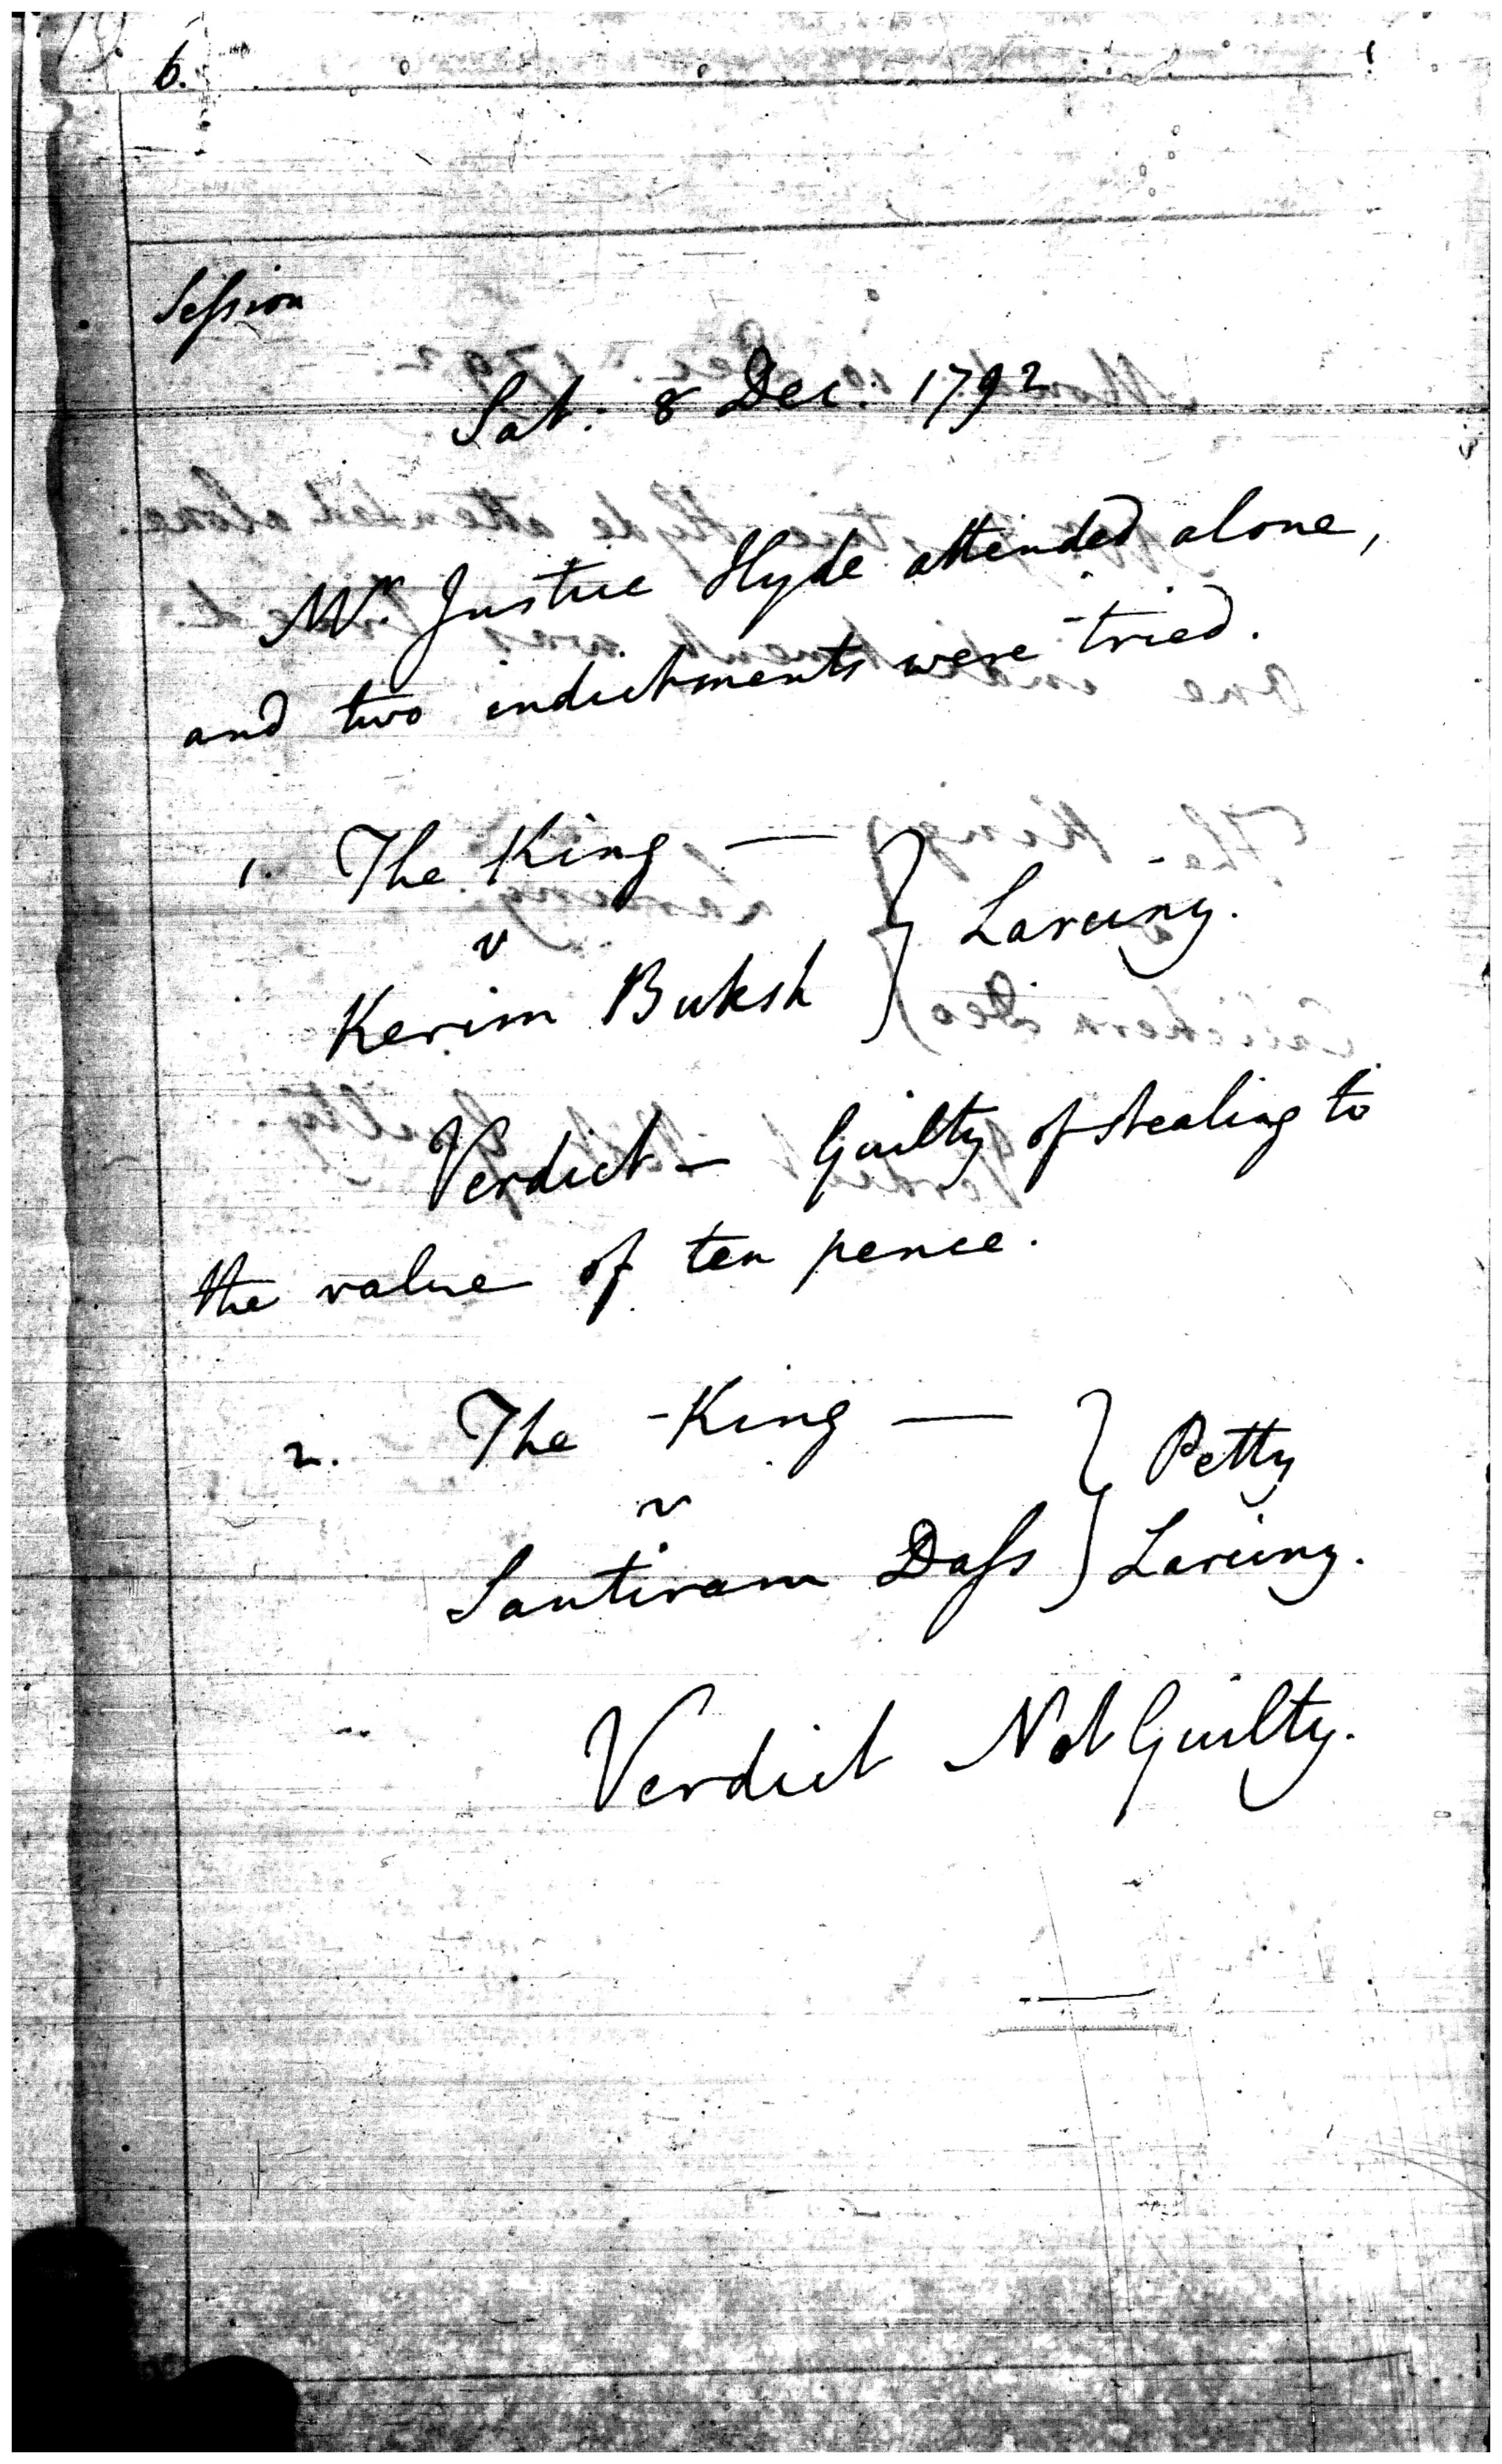 6.
Session
Sat: 8 Dec: 1792
Mr. Justice Hyde attended alone,
and two indictments were tried.
1. The King — } Larceny.
v
Kerim Buksh
Verdict — Guilty of stealing to
the value of ten pence.
2. The King — } Petty
v
Santiram Dass } Larceny.
Verdict Not Guilty.